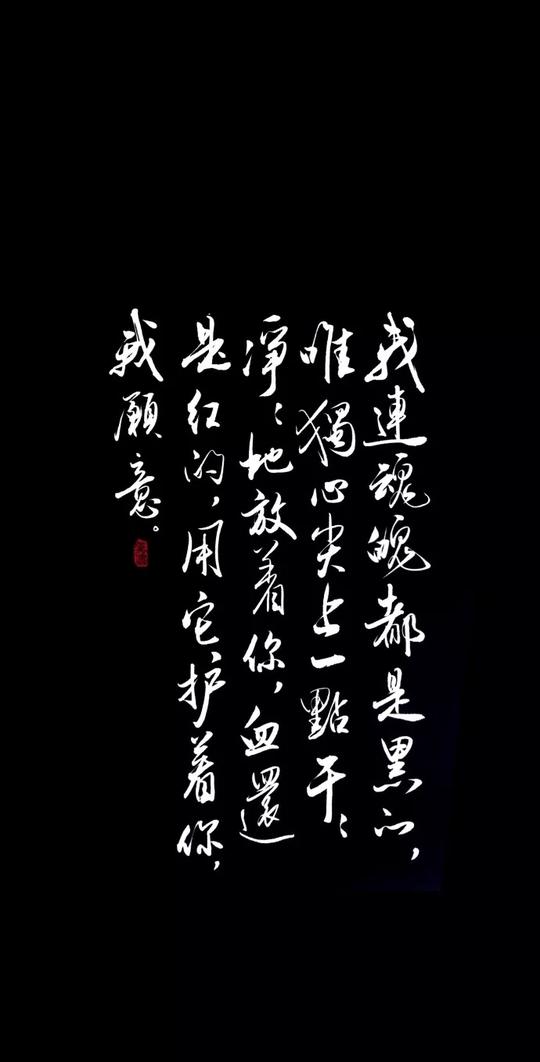 我連魂魄都是黑的，
唯獨心尖上一點干〻
淨〻地放着你，血還
是红的，用它护着你，
我願意。